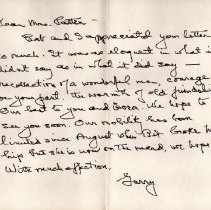 Dear Mrs. Patter -
Bab and I appreciated your letter
so much. It was as eloquent in what it
didn't say as in what it did say -
recollection of a wonderful man, courage
on your part, the warmth of old friendship
Our best to you and Dora. We hope to
see you soon. Our mobility has been
limited since August when Bab broke h
hip but she is now on the mend, we hope
With much affection,
Gerry